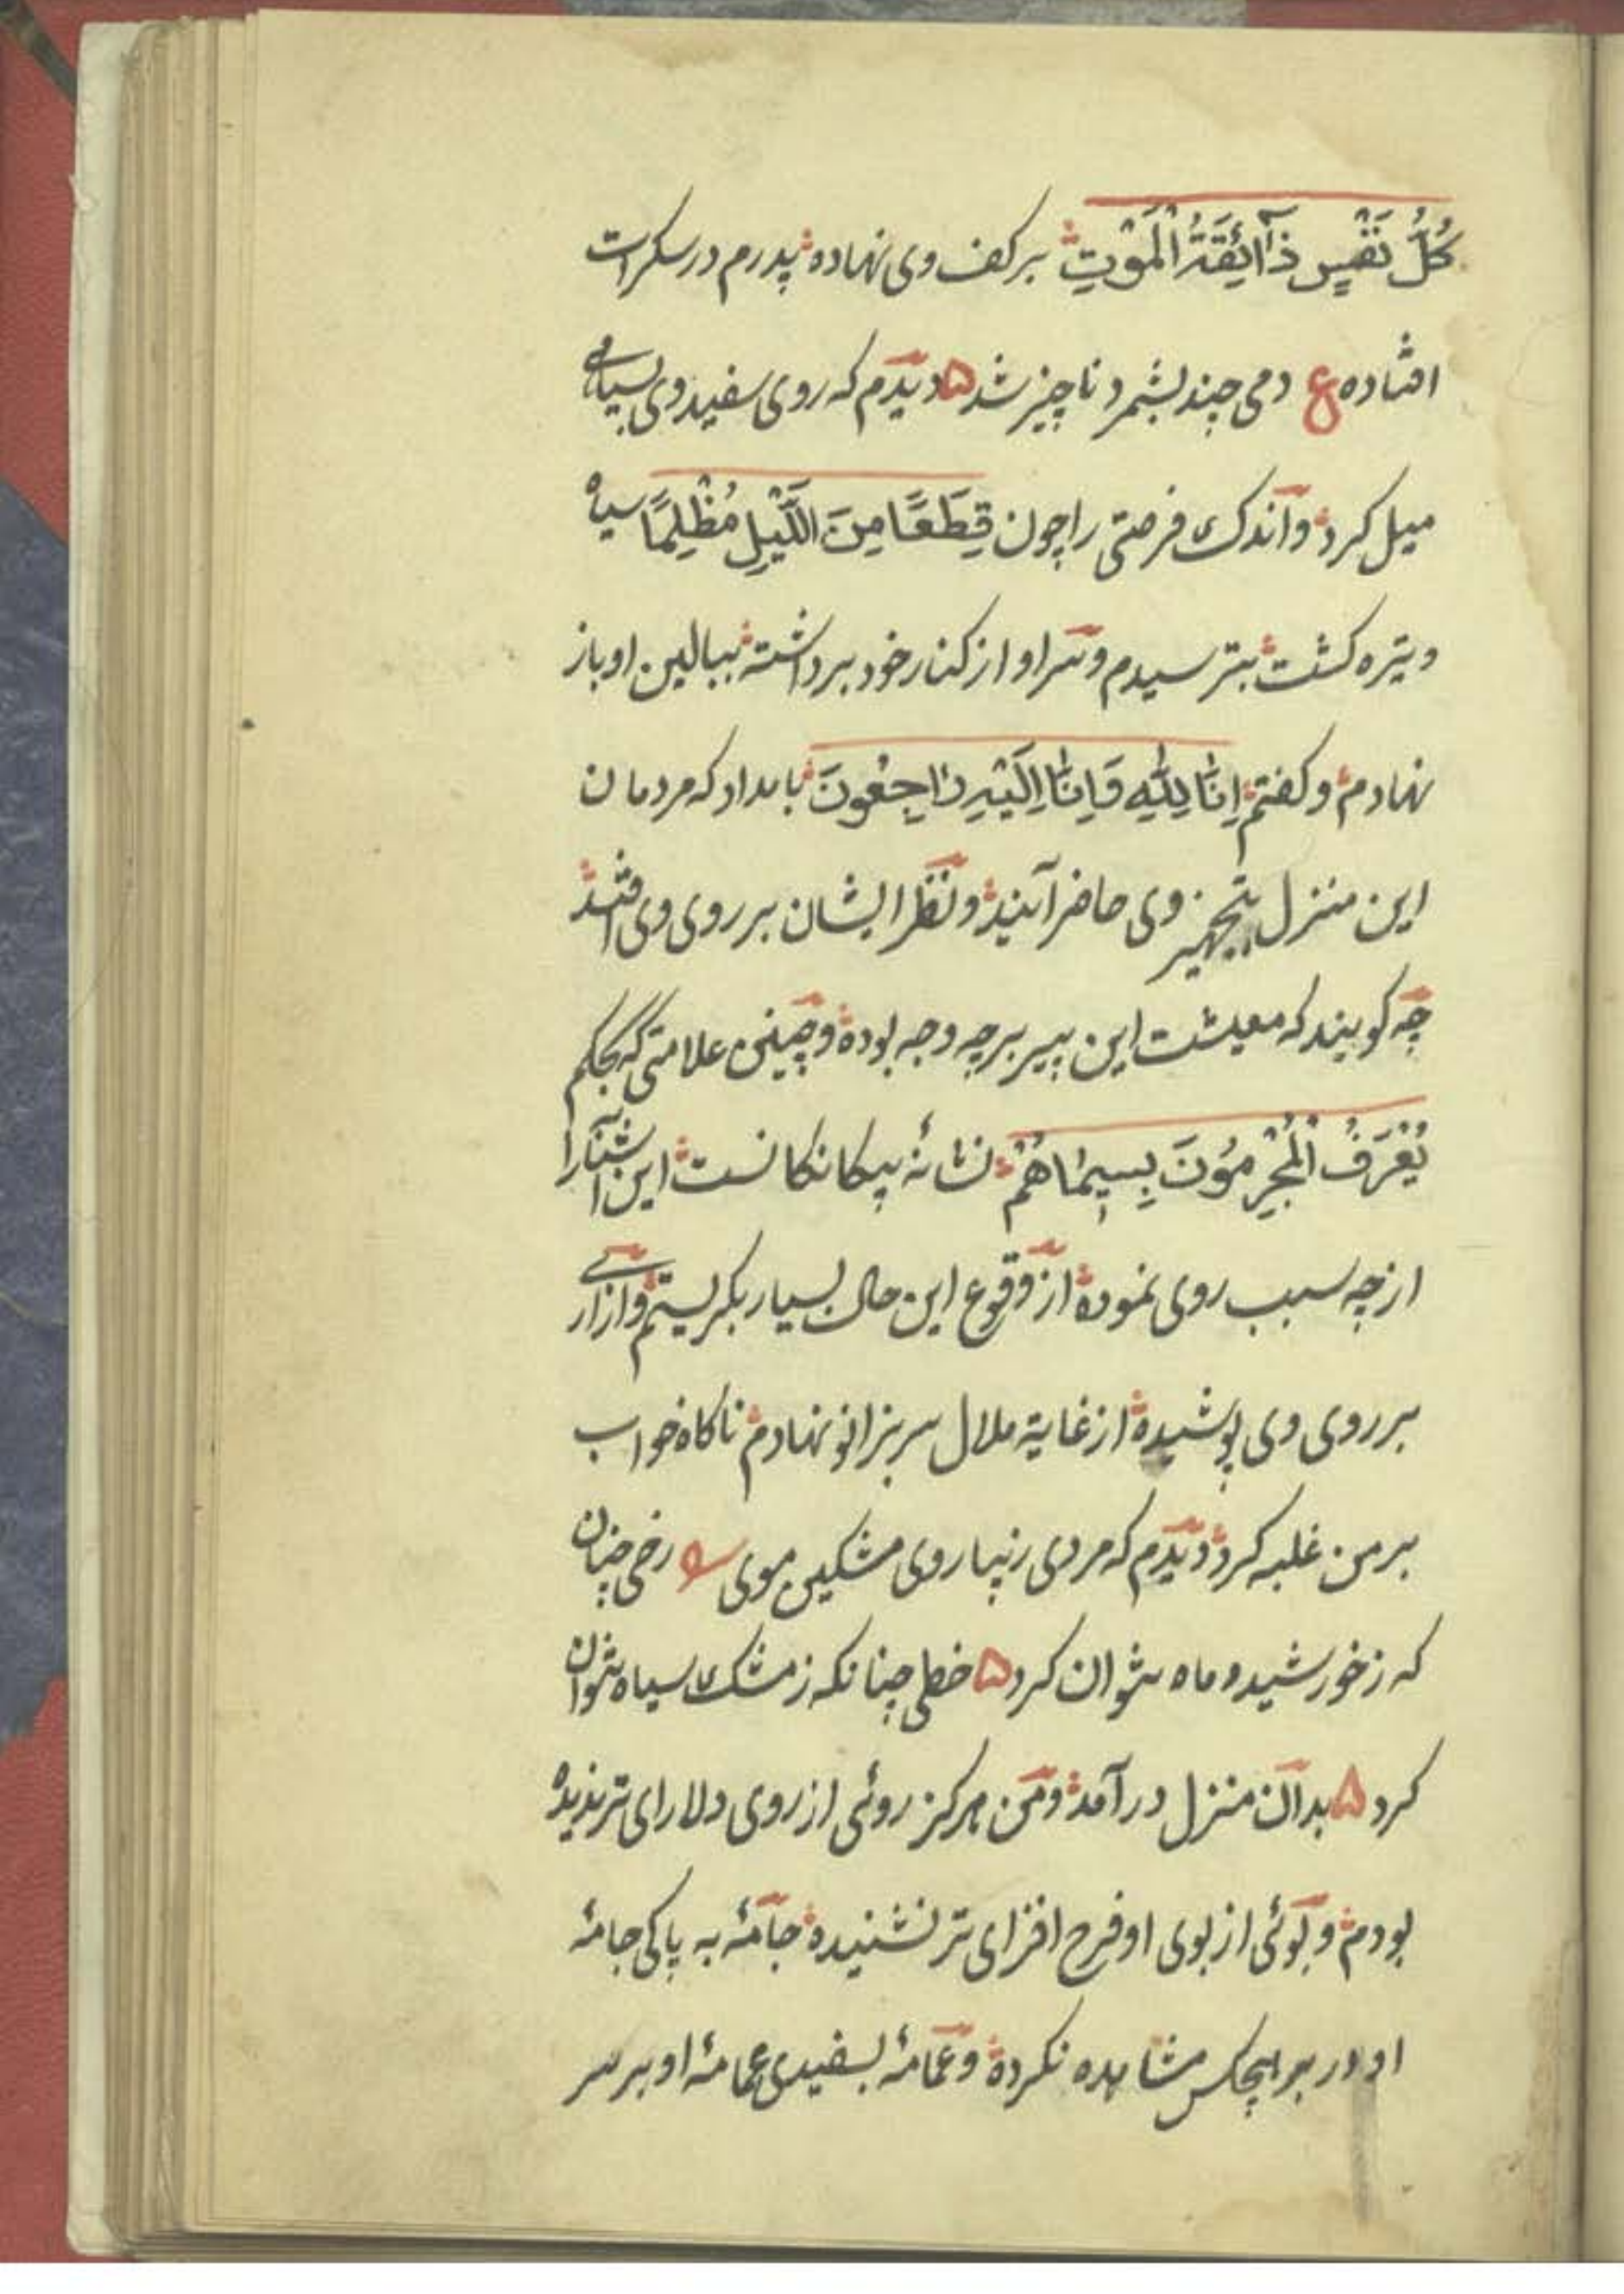 كُلُّ نَفْسٍ ذَآئِقَةُ الْمَوْتِ بر کف وی نهاده پدرم در سکرات
افتاده ع دمی چند بشمرد ناچیز شد ه دیدم که روی سفید وی بسیاهی
میل کرد و اندک فرصتی را چون قِطَعًا مِنَ اللَّيْلِ مُظْلِمًا سیاه
و تیره کشت بترسیدم و سر او از کنار خود برداشته ببالین او باز
نهادم و کفتم اِنَّا لِلّٰهِ وَاِنَّا اِلَيْهِ رَاجِعُونَ بامداد که مردمان
این منزل بتجهیز وی حاضر آیند و نظر ایشان بر روی وی افتد
چه کویند که معیشت این پیر بر چه وجه بوده و چنین علامتی که بحکم
يُعْرَفُ الْمُجْرِمُونَ بِسِيمَاهُمْ نشانهٔ بیکانکانست این آشنا را
از چه سبب روی نموده از وقوع این حال بسیار بکریستم و ازاری
بر روی وی پوشیده از غایة ملال سر بزانو نهادم ناکاه خواب
بر من غلبه کرد دیدم که مردی زیبا روی مشکین موی رخی چنان
که ز خورشید و ماه نتوان کرد ه خطی چنانکه ز مشک سیاه نتوان
کرد ه بدان منزل درآمد و من هرکز روئی از روی دلارای تر ندیده
بودم و بوئی از بوی او فرح افزای تر نشنیده جامهٔ به پاکی جامهٔ
او در بر هیچکس مشاهده نکرده و عمامهٔ بسفیدی عمامهٔ او بر سر